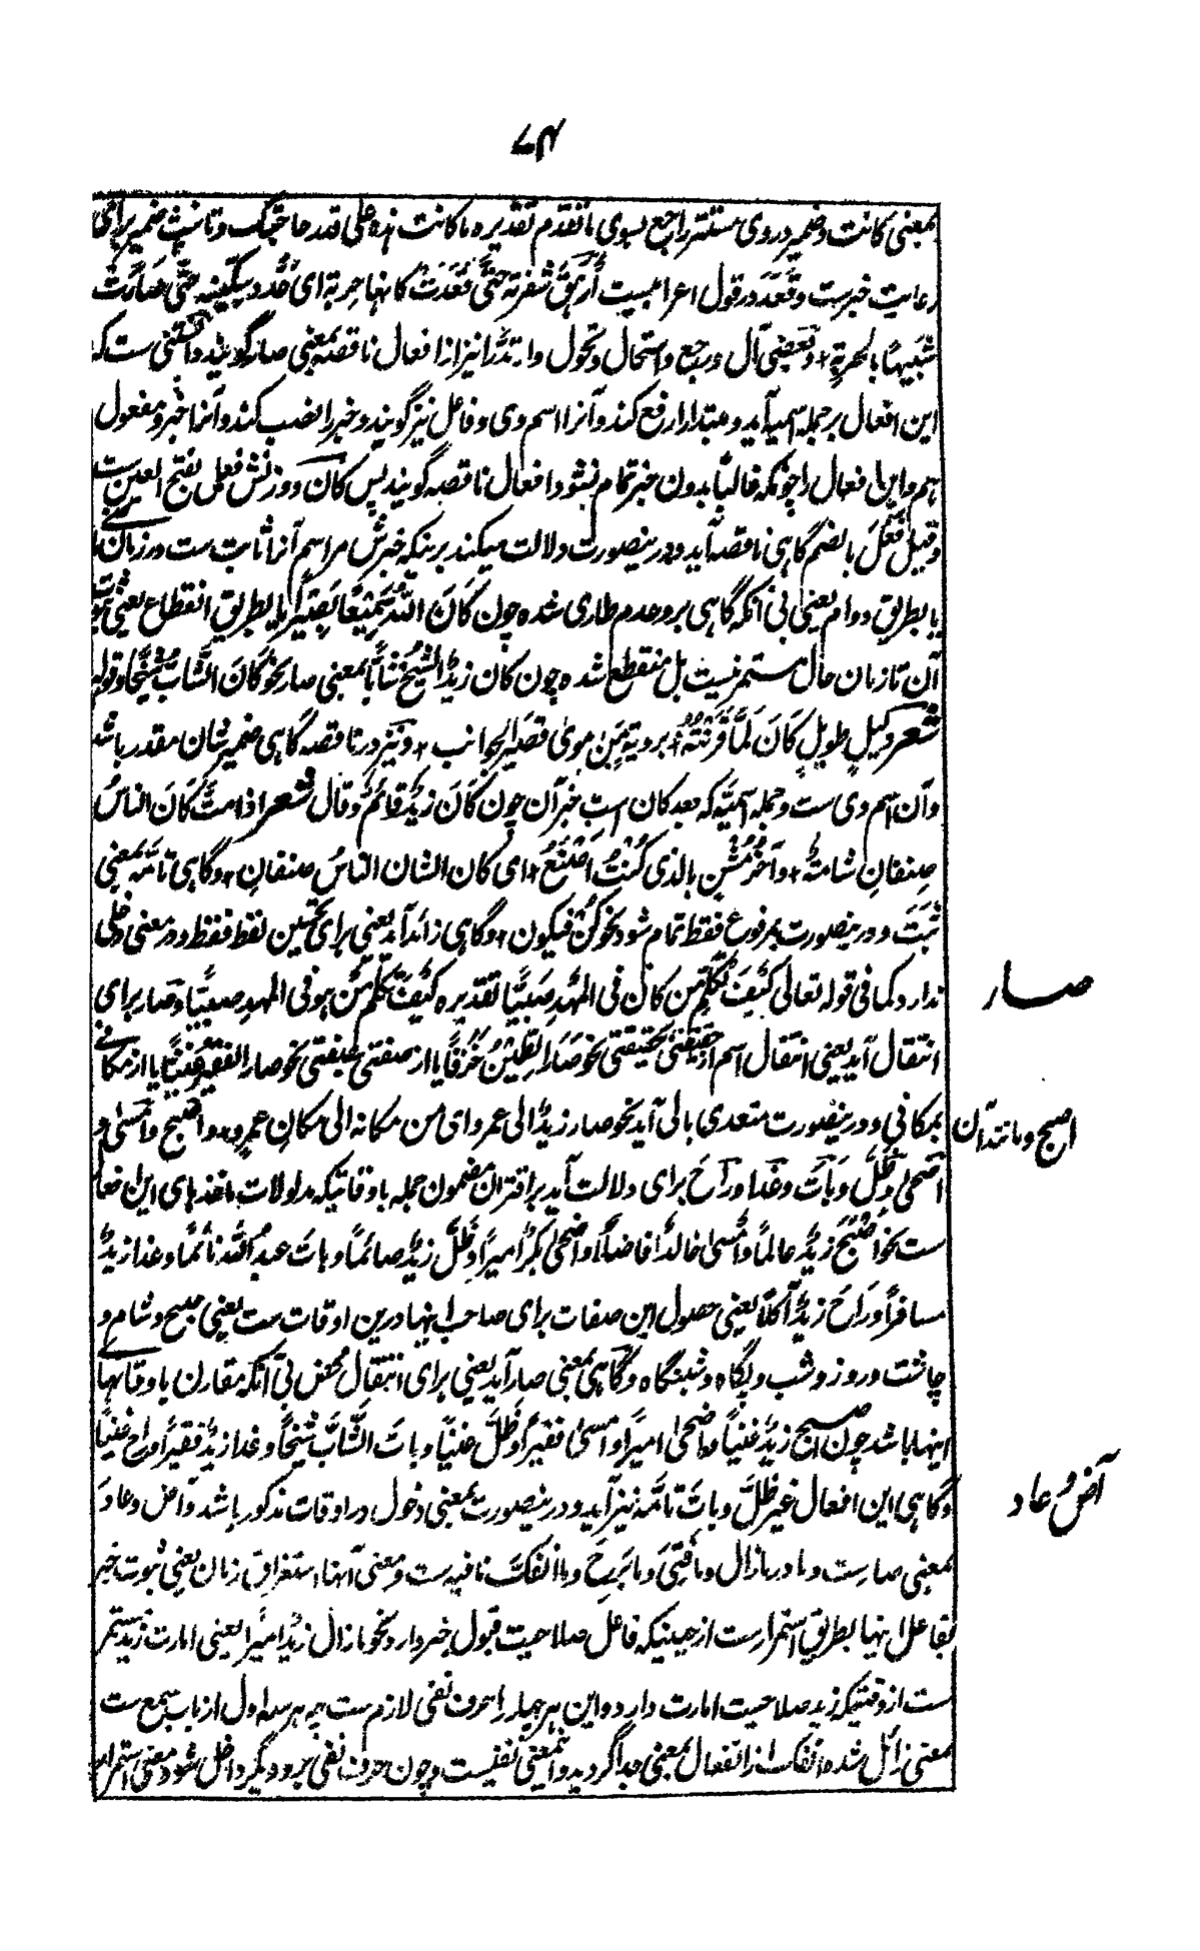 ۷۴
بمعنی کانت و ضمیر در وی مستتر راجع بسوی ما تقدم تقدیره ما کانت هذه علی قدر حاجتک و تانیث ضمیر برای
رعایت خبرست و قَعَدَ در قول اعرابیست اَرْهَقَ شفرته حَتّٰی قَعَدَتْ کانها حربة ای حَدَّدَ سکّینه حتّی صَارَتْ
شبیهاً بالحربةِ و بعضی آل و رجع و استحال و تحول و ارتدّ را نیز از افعال ناقصه بمعنی صار گویند و ست که
این افعال بر جمله اسمیه آید و مبتدا را رفع کند و آنرا اسم وی و فاعل نیز گویند و خبر را نصب کند و آنرا خبر و مفعول
هم و این افعال را چونکه غالباً بدون خبر تمام نشود افعال ناقصه گویند پس کَانَ و وزنش فعل بفتح العین ست
و قیل فَعُلَ بالضم گاهی ناقصه آید و درینصورت دلالت میکند برینکه خبرش مر اسم آنرا ثابت ست در زمان
یا بطریق دوام یعنی بی آنکه گاهی برو عدم طاری شده چون کَانَ اللّٰهُ سَمِیْعًا بَصِیْراً یا بطریق انقطاع یعنی ثبوت
آن تا زمان حال مستمر نیست بل منقطع شده چون کان زیدٌ الشیخُ شاباً بمعنی صار نحو کَانَ الشَّابُ شَیْخًا و قوله
شعر طویلٍ کَانَ لَمَّا
و آن اسم وی ست و جمله اسمیّه که بعد کان است خبر آن چون کَانَ زیدٌ قائمٌ و قال شعر اذا متُّ کَانَ الناسُ
صِنفانِ شامتٌ و آخرُ مُثْنٍ بالذی کُنْتُ اَصْنَعُ ای کان الشان الناسُ صنفانِ و گاهی تامّه بمعنی
ثَبَتَ و درینصورت بمرفوع فقط تمام شود نحو کُن فَیکون و گاهی زائد آید یعنی برای تحسین لفظ فقط و در معنی دخلی
ندارد کما فی قوله تعالی کَیْفَ نُکَلِّمُ مَن کَانَ فی المَهْدِ صَبِیًّا تقدیره کَیْفَ نُکَلِّمُ مَنْ هو فی المهدِ صبیًّا و صار برای
صار
انتقال آید یعنی انتقال اسم از حقیقتی بحقیقتی نحو صَارَ الطِّیْنُ خَزَفًا یا از صفتی بصفتی نحو صار الفقیرُ غنیًّا یا از مکانی
بمکانی و درینصورت متعدی بالی آید نحو صار زیدٌ الی عمرو ای من مکانه الی مکانِ عمرو و اصبح و اَمسٰی و
اصبح و مانند آن
اضحیٰ و ظلَّ و بَاتَ و غَدا و رَاحَ برای دلالت آید بر اقتران مضمون جمله باوقاتیکه مدلولات ماخذهای این افعال
ست نحو اَصْبَحَ زیدٌ عالماً و اَمْسیٰ خالدٌ فاضلاً و اضحیٰ بکرٌ امیراً و ظَلَّ زیدٌ صائماً و باتَ عبدُ اللّٰه نائماً و غدا زیدٌ
مسافراً و رَاحَ زیدٌ آکلاً یعنی حصول این صفات برای صاحب اینها درین اوقات ست یعنی صبح و شام و
چاشت و روز و شب و پگاه و شبنگاه و گاهی بمعنی صار آید یعنی برای انتقالِ محض بی آنکه مقارن باوقاتها
اینها باشد چون اصبح زیدٌ غنیاً و اضحیٰ امیراً و امسیٰ فقیراً و ظَلَّ غنیّاً و باتَ الشَّابُّ شیخاً و غدا زیدٌ فقیراً و راح غنیّاً
و گاهی این افعال غیر ظلَّ و باتَ تامّه نیز آید و درینصورت بمعنی دخول در اوقات مذکور باشد و آضَ و عادَ
آض و عاد
بمعنی صارست و ما در ما زال و مَا فَتِیَٔ وَ مَا بَرِحَ و ما انفکَّ نافیه ست و معنی آنها استغراقِ زمان یعنی ثبوت خبر
بفاعل اینها بطریقِ استمرارست از حینیکه فاعل صلاحیت قبول خبر دارد نحو ما زال زیدٌ امیراً یعنی امارت زید مستمر
ست از وقتیکه زید صلاحیت امارت دارد و این هر چهار را حرف نفی لازم ست چه هر سه اول از باب سمع ست
بمعنی زائل شده انفکّ از انفعال بمعنی جدا گردید و اینمعنی نفیست و چون حرف نفی برو دیگر داخل شود معنی استمرار